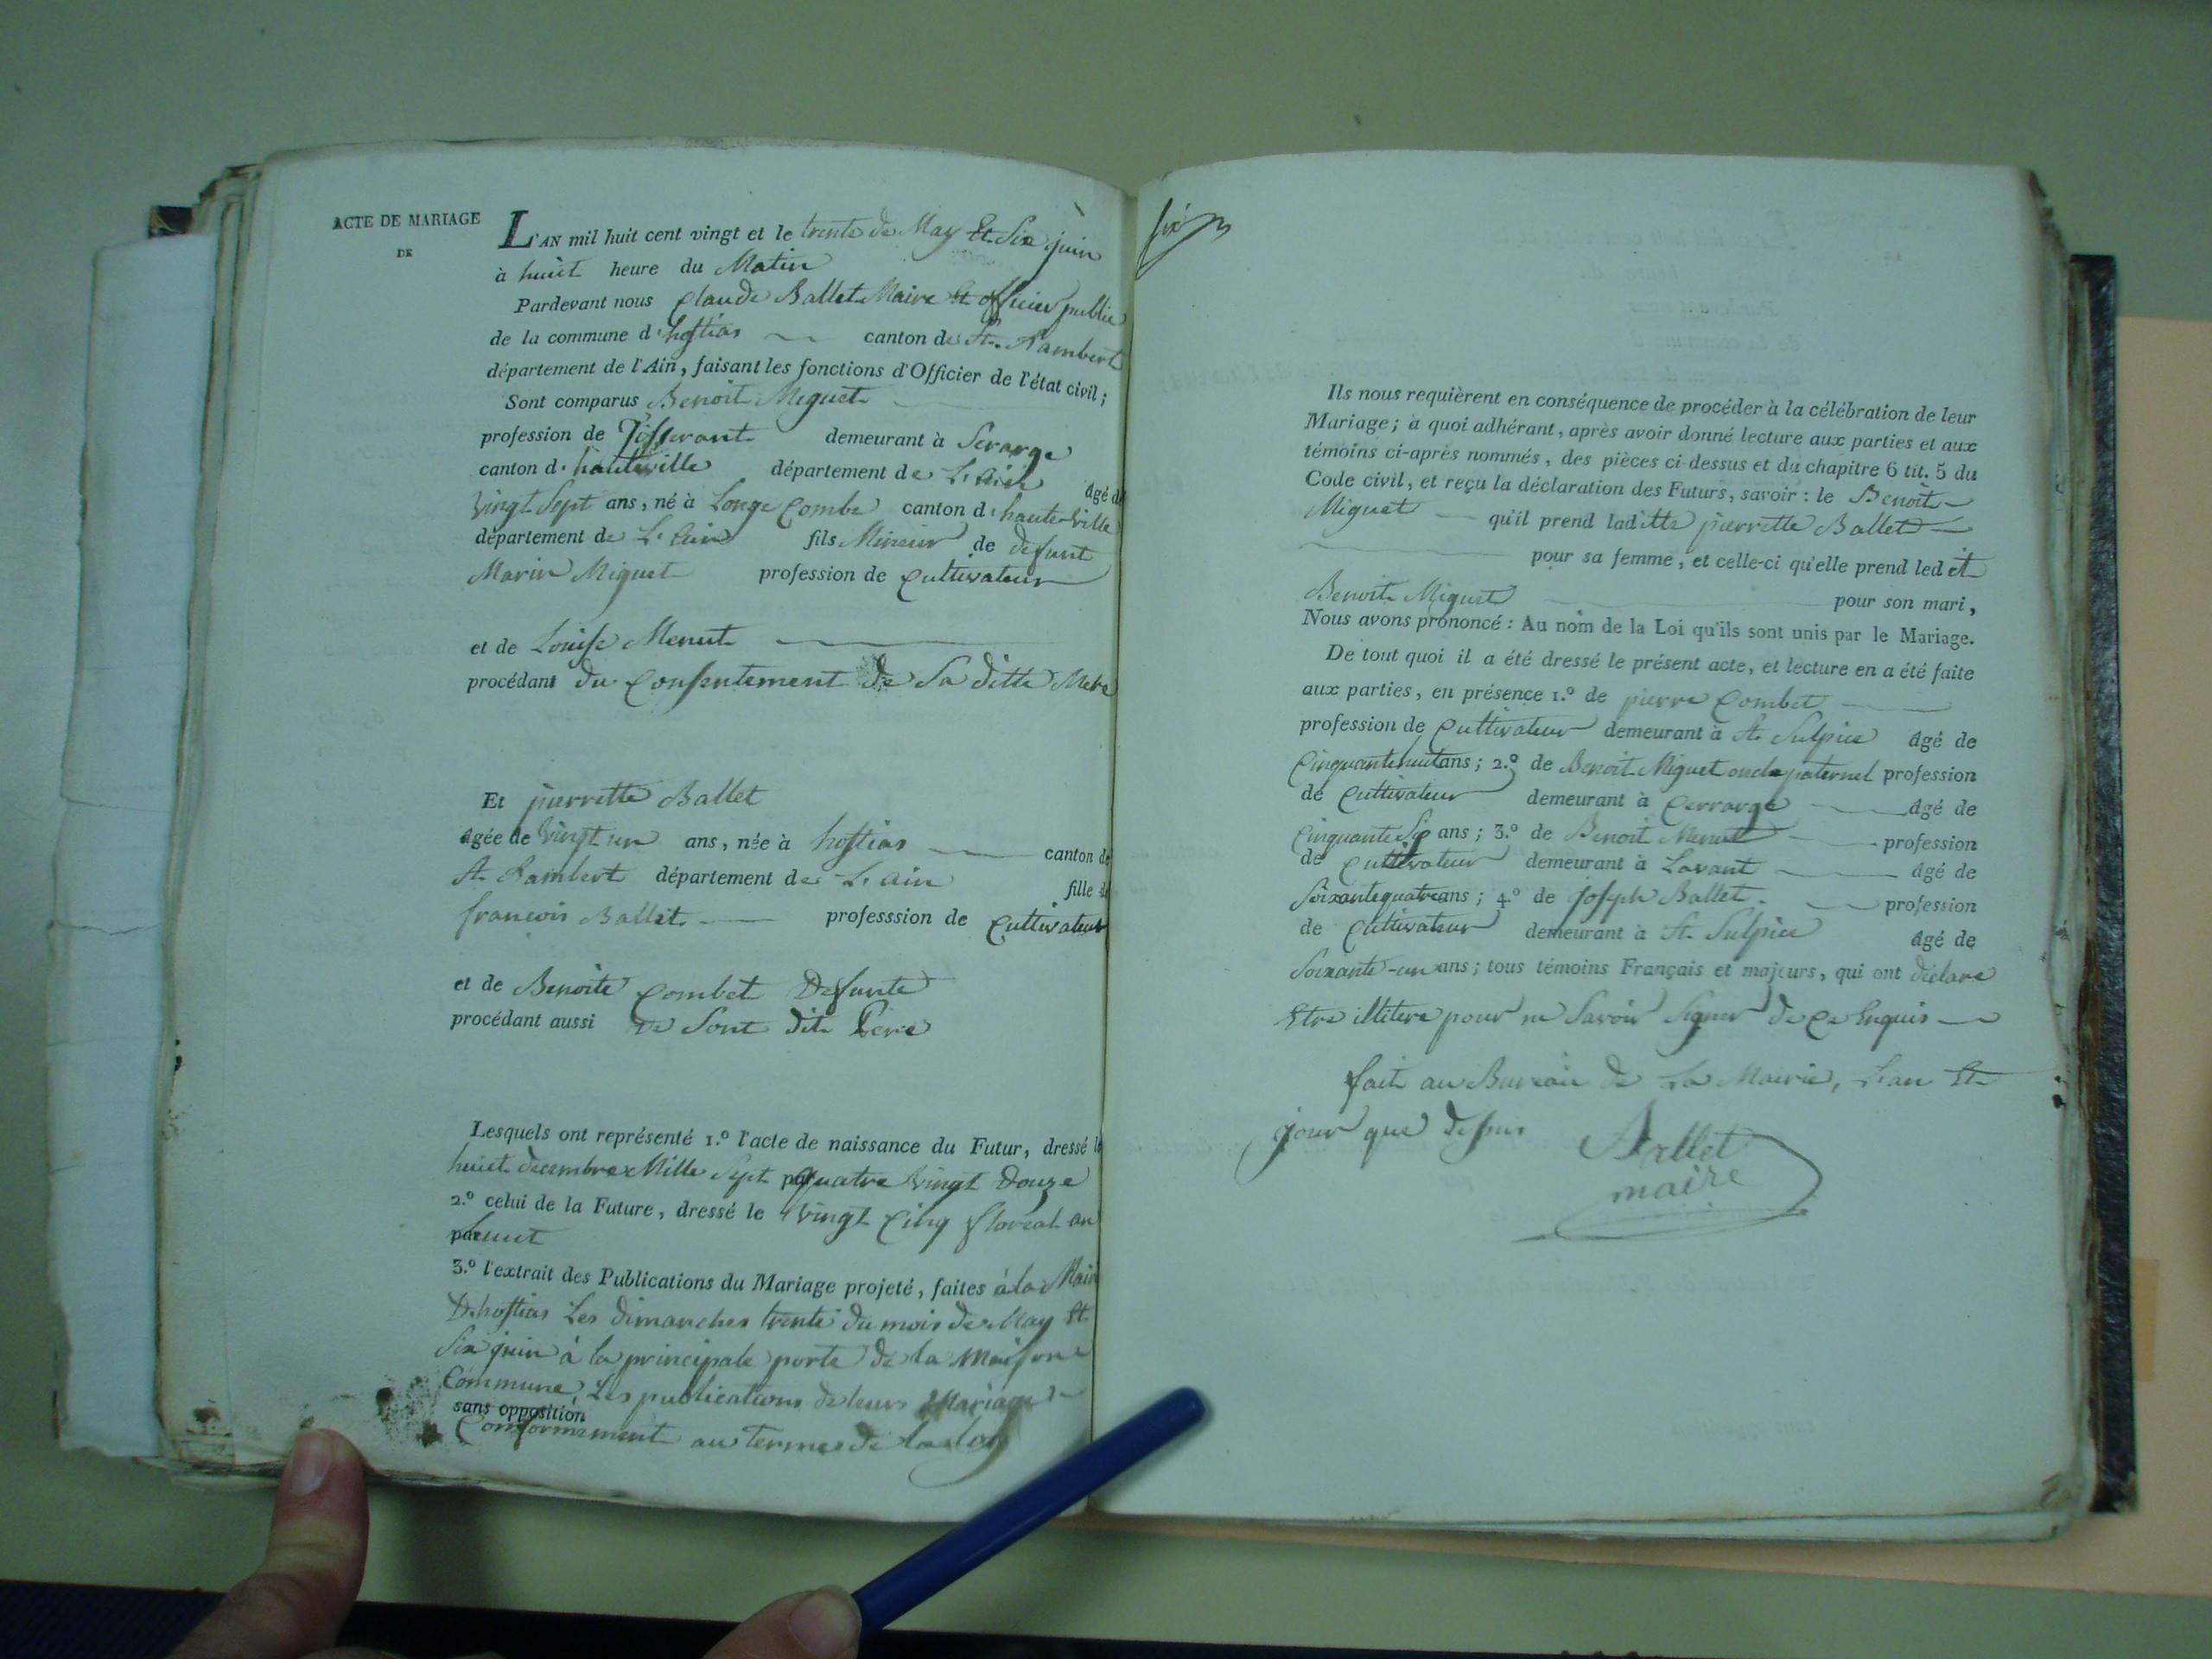 ACTE DE MARIAGE
DE
L'AN mil huit cent vingt et le trente de May Et Six juin
à huit heure du Matin
Pardevant nous Claude Ballet Maire Et officier public
de la commune d'hostias canton de St. Rambert
département de l'Ain, faisant les fonctions d'Officier de l'état civil;
Sont comparus Benoit Miguet
profession de Tisserant demeurant à Serarge
canton d. hauteville département de L'Ain âgé de
vingt Sept ans, né à Longe Combe canton d. hauteville
département de L'ain fils Mineur de defunt
Marin Miguet profession de Cultivateur
et de Louise Menut
procédant du Consentement de Sa ditte Mere
Et pierrette Ballet
âgée de vingt un ans, née à hostias canton de
St. Rambert département de L'ain fille de
francois Ballet professsion de Cultivateur
et de Benoite Combet Defunte
procédant aussi de Sont dit Pere
Lesquels ont représenté 1.º l'acte de naissance du Futur, dressé le
huit decembre Mille Sept par quatre vingt Douze
2.º celui de la Future, dressé le vingt Cinq floreal an
par huit
3.º l'extrait des Publications du Mariage projeté, faites à la Mairi
D'hostias Les dimanches trente du mois de May Et
Six juin à la principale porte de la Maison
Commune, Les publications de leurs Mariage
sans opposition
Conformement au termes de la loy
six
Ils nous requièrent en conséquence de procéder à la célébration de leur
Mariage; à quoi adhérant, après avoir donné lecture aux parties et aux
témoins ci-après nommés, des pièces ci-dessus et du chapitre 6 tit. 5 du
Code civil, et reçu la déclaration des Futurs, savoir : le Benoit
Miguet qu'il prend laditte pierrette Ballet
pour sa femme, et celle-ci qu'elle prend ledit
Benoit Miguet pour son mari,
Nous avons prononcé : Au nom de la Loi qu'ils sont unis par le Mariage.
De tout quoi il a été dressé le présent acte, et lecture en a été faite
aux parties, en présence 1.º de pierre Combet
profession de Cultivateur demeurant à St. Sulpice âgé de
Cinquante huit ans; 2.º de Benoit Miguet oncle paternel profession
de Cultivateur demeurant à Cerrarge âgé de
Cinquante Six ans; 3.º de Benoit Menut profession
de Cultivateur demeurant à Lavant âgé de
Soixante quatre ans; 4.º de joseph Ballet profession
de Cultivateur demeurant à St. Sulpice âgé de
Soixante-un ans; tous témoins Français et majeurs, qui ont déclaré
Etre illitere pour ne Savoir Signer de Ce Enquis
fait au Bureau de La Mairie, L'an Et
jour que dessus
Ballet
maire